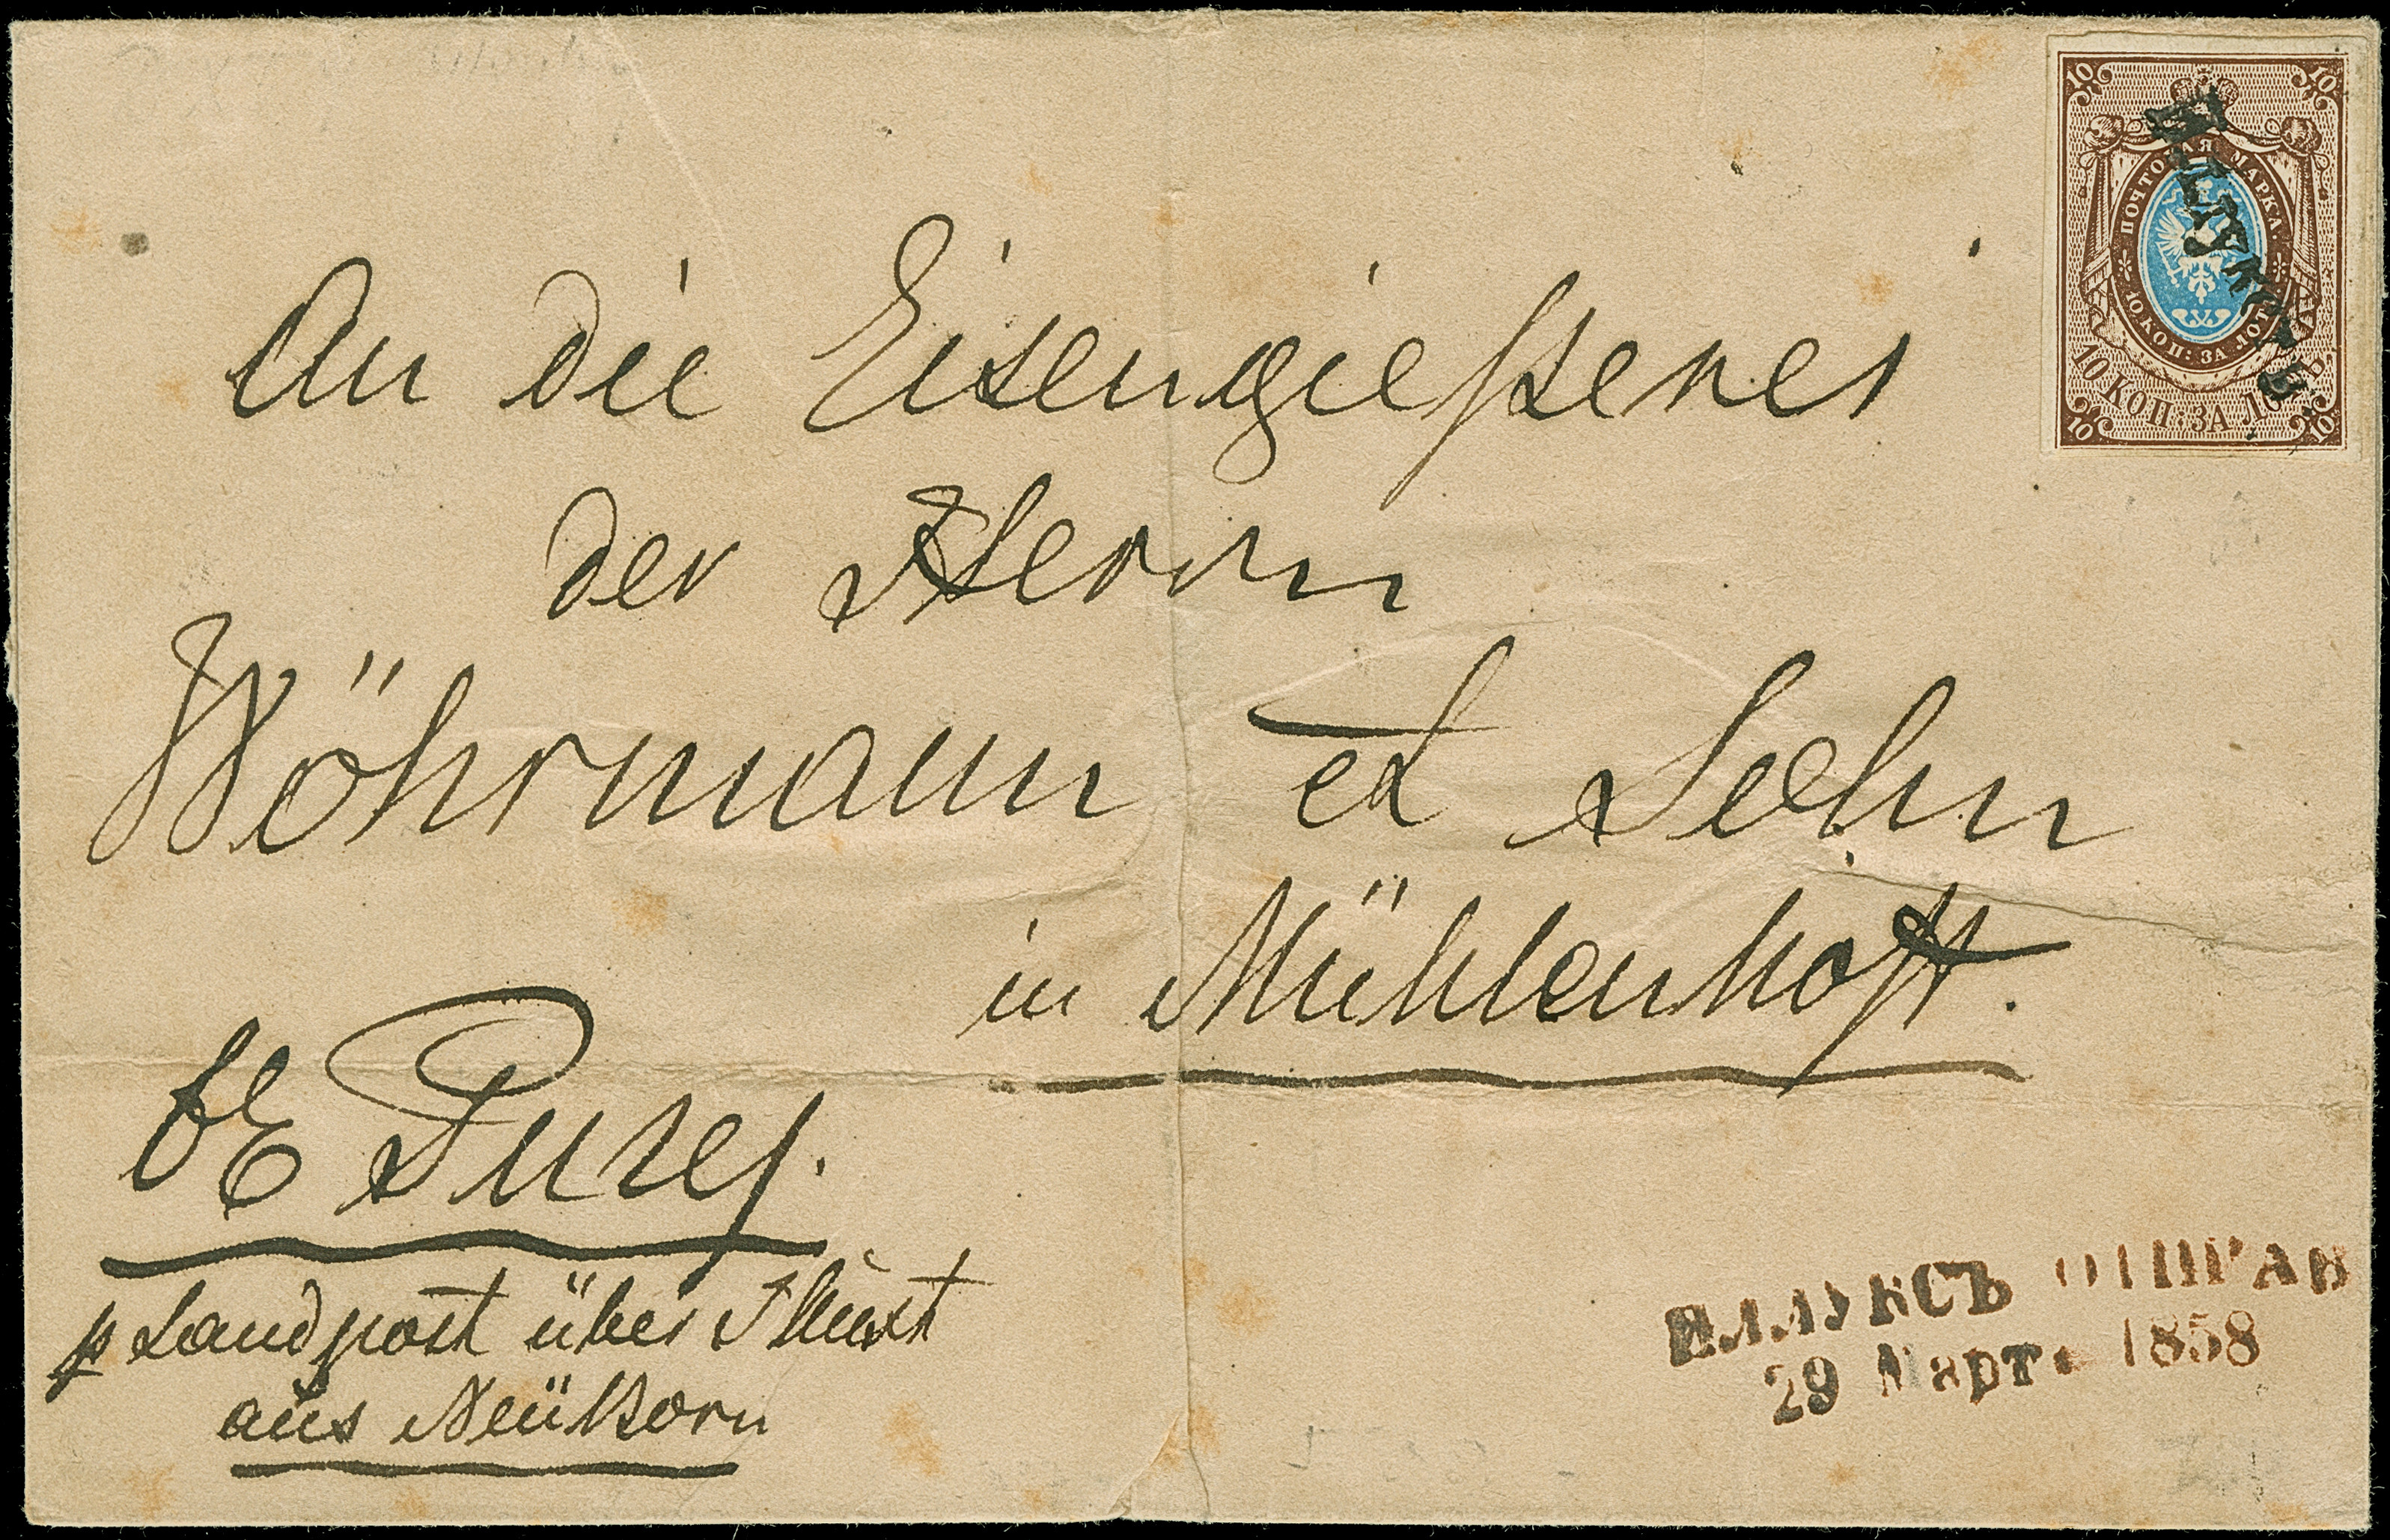 An die Eisengießerei
der Herrn
Wöhrmann et Sohn
in Mühlenhoff.
p Landpost über Illuxt
aus
10 10
ПОЧТОВАЯ МАРКА.
10 КОП: ЗА ЛОТЪ
10 КОП: ЗА ЛОТЪ.
10 10
ИЛЛУКСТЪ
ИЛЛУКСЪ ОТПРАВ
29 Марта 1858